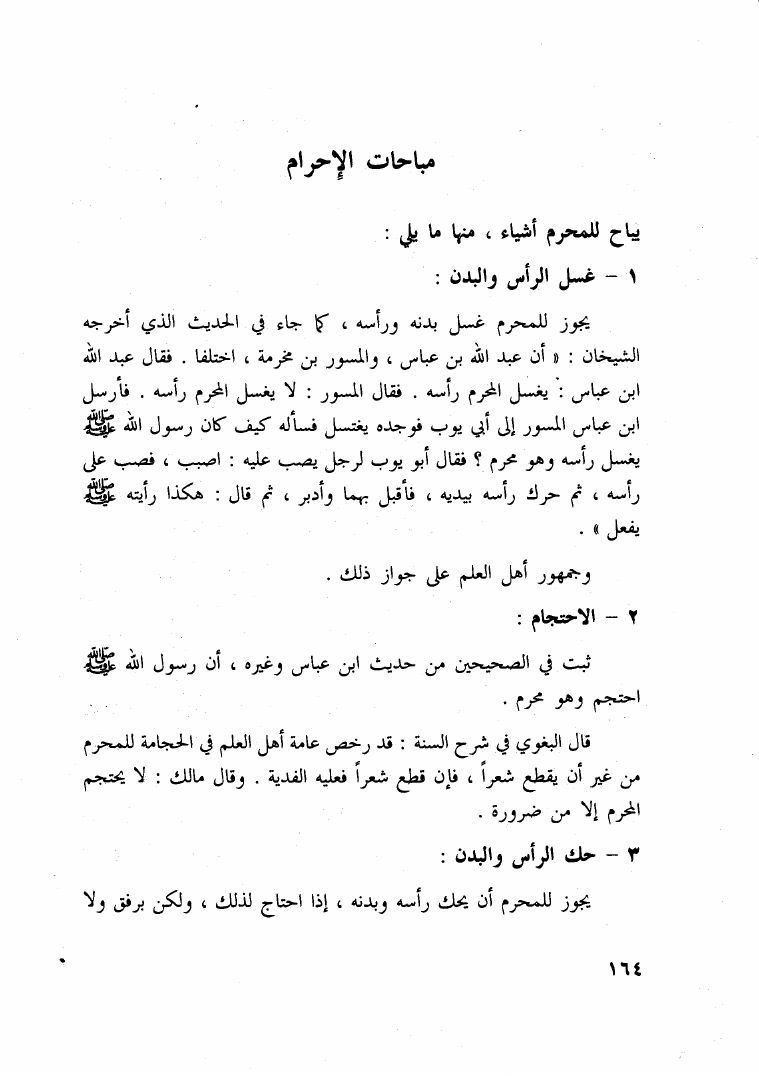 مباحات الإحرام
يباح للمحرم أشياء ، منها ما يلي :
١ – غسل الرأس والبدن :
يجوز للمحرم غسل بدنه ورأسه ، كما جاء في الحديث الذي أخرجه
الشيخان : « أن عبد الله بن عباس ، والمسور بن مخرمة ، اختلفا . فقال عبد الله
ابن عباس : يغسل المحرم رأسه . فقال المسور : لا يغسل المحرم رأسه . فأرسل
ابن عباس المسور إلى أبي يوب فوجده يغتسل فسأله كيف كان رسول الله ﷺ
يغسل رأسه وهو محرم ؟ فقال أبو يوب لرجل يصب عليه : اصبب ، فصب على
رأسه ، ثم حرك رأسه بيديه ، فأقبل بهما وأدبر ، ثم قال : هكذا رأيته ﷺ
يفعل » .
وجمهور أهل العلم على جواز ذلك .
٢ – الاحتجام :
ثبت في الصحيحين من حديث ابن عباس وغيره ، أن رسول الله ﷺ
احتجم وهو محرم .
قال البغوي في شرح السنة : قد رخص عامة أهل العلم في الحجامة للمحرم
من غير أن يقطع شعراً ، فإن قطع شعراً فعليه الفدية . وقال مالك : لا يحتجم
المحرم إلا من ضرورة .
٣ – حك الرأس والبدن :
يجوز للمحرم أن يحك رأسه وبدنه ، إذا احتاج لذلك ، ولكن برفق ولا
١٦٤